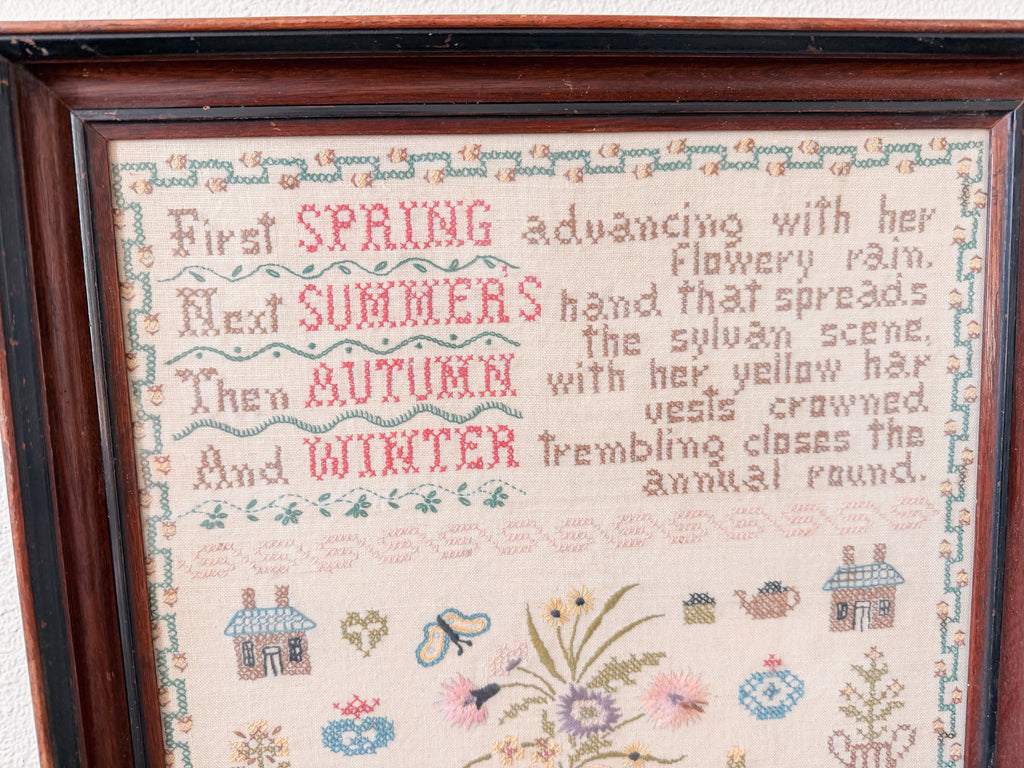 First SPRING advancing with her
flowery rain.
Next SUMMER'S hand that spreads
the sylvan scene,
Then AUTUMN with her yellow har
vests crowned
And WINTER trembling closes the
annual round.